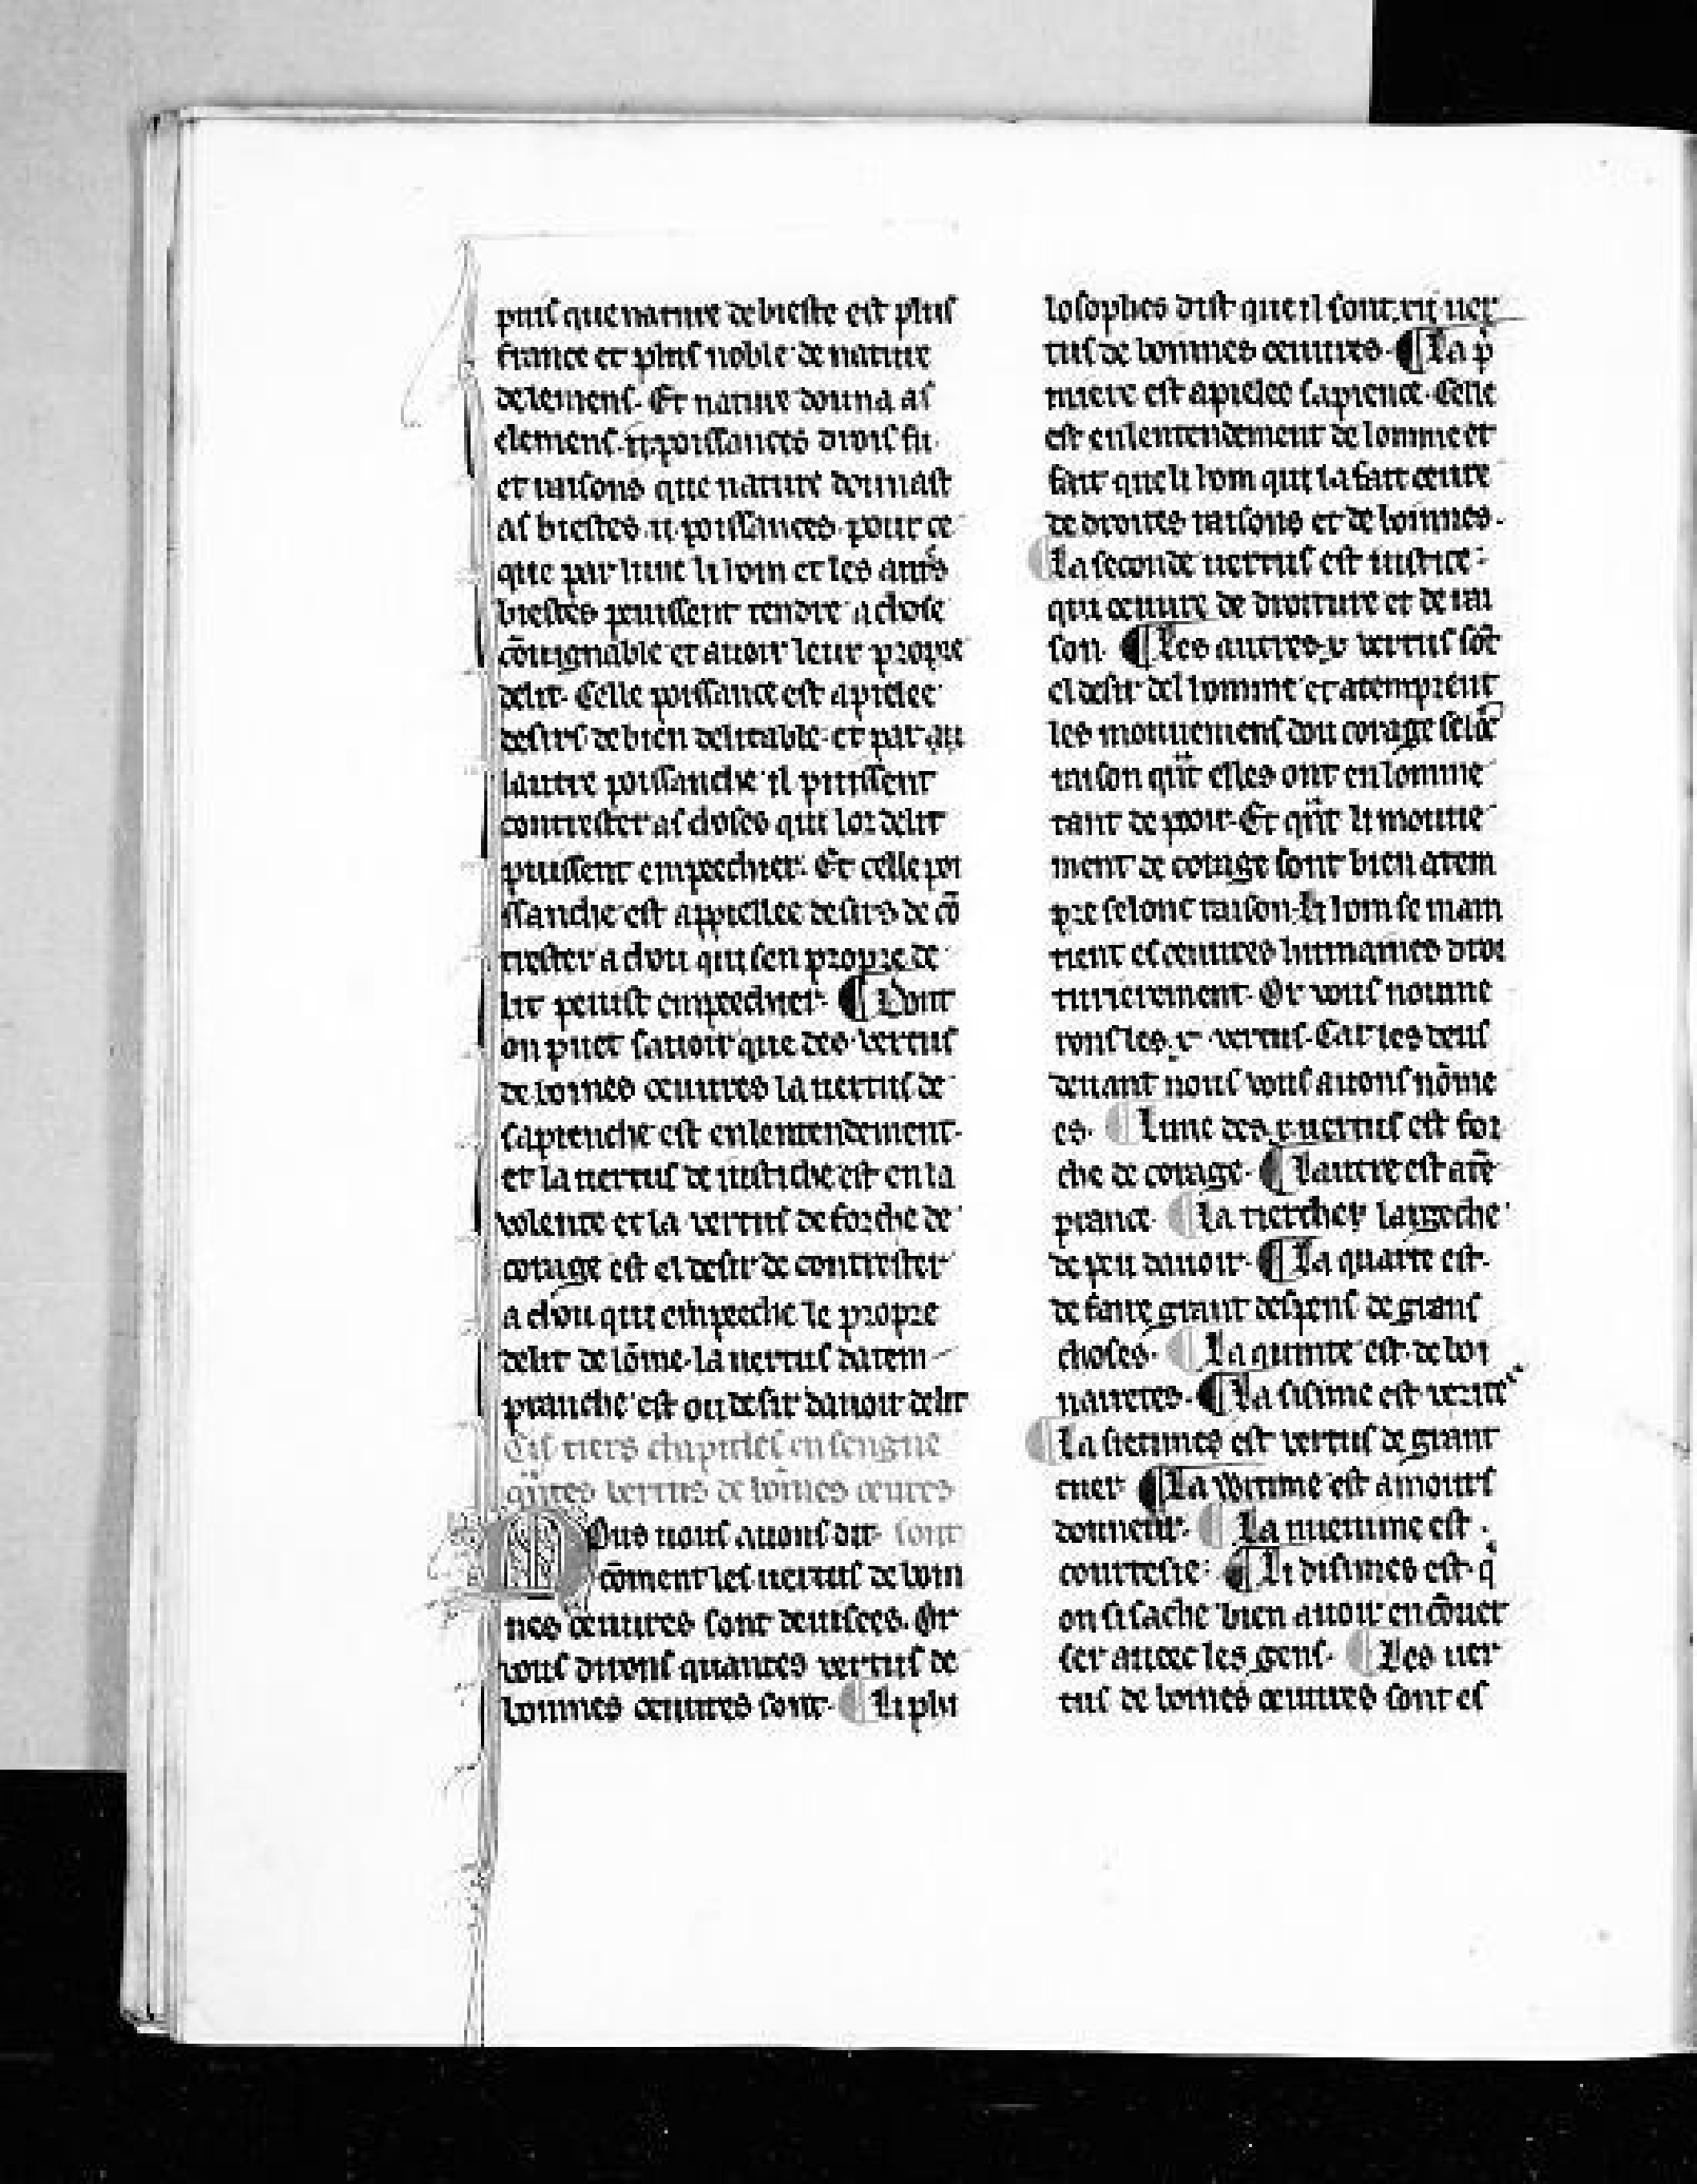 puis que nature de bieste est plus
france et plus noble de nature
delemens. Et nature douna as
elemens .ii. poissances drois fu
et raisons que nature dounast
as biestes .ii. poissances. pour ce
que par lune li hom et les autͤs
biestes peuissent tendre a chose
cōuignable et auoir leur propre
delit. Celle poissance est apielee
desirs de bien delitable. et par qu
lautre poissanche il puissent
contrester as choses qui lor delit
puissent empeechier. Et celle poi
ssanche est appiellee desirs de cō
trester a chou qui sen propre de
lit peuist empeechier. ¶ Dont
on puet sauoir que des vertus
de boines oeuures la uertus de
sapienche est en lentendement.
et la uertus de iustiche est en la
volente et la vertus de forche de
corage est el desir de contrister
a chou que empeeche le propre
delit de lōme. la uertus datem
pranche est ou desir dauoir delit
Cis tiers chapitles ensengne
q̈ntes vertus de boīnes oeures
Ous nous auons dit sont
cōment les uertus de boin
nes oeuures sont deuisees. Or
vous dirons quantes vertus de
bonnes oeuures sont. ¶ Li phi
losophes dist que il sont .xii. uer
tus de bonnes oeuures. ¶ La pͥ
miere est apielee sapience. Celle
est en lentendement de lomme et
fait que li hom qui la fait oeure
de droites raisons et de boinnes.
¶ La seconde uertus est iustice.
qui oeuure de droiture et de rai
son. ¶ Les autres .x. vertus sōt
el desir del homme et atemprent
les mouuemens dou corage selōc
raison qͣnt elles ont en lomme
tant de pooir. Et qͣnt li mouue
ment de corage sont bien atem
pre selonc raison. li hom se main
tient es oeuures humaines droi
turierement. Or vous noume
rons les .x. vertus. Car les deus
deuant nous vous auons nōme
es. ¶ Lune des .x. uertus est for
che de corage. ¶ Lautre est atē
prance. ¶ La tierche ȳ largeche
de peu dauoir. ¶ La quarte est.
de faire grant despens de grans
choses. ¶ La quinte est. de boi
nairetes. ¶ La sisime est verite
¶ La sietimes est vertus de grant
cuer. ¶ La witime est amours
donneur. ¶ La nuenime est .
courtesie. ¶ Li disimes est. qͥ
on si sache bien auoir en cōuer
ser auoec les gens. ¶ Les uer
tus de boines oeuures sont es